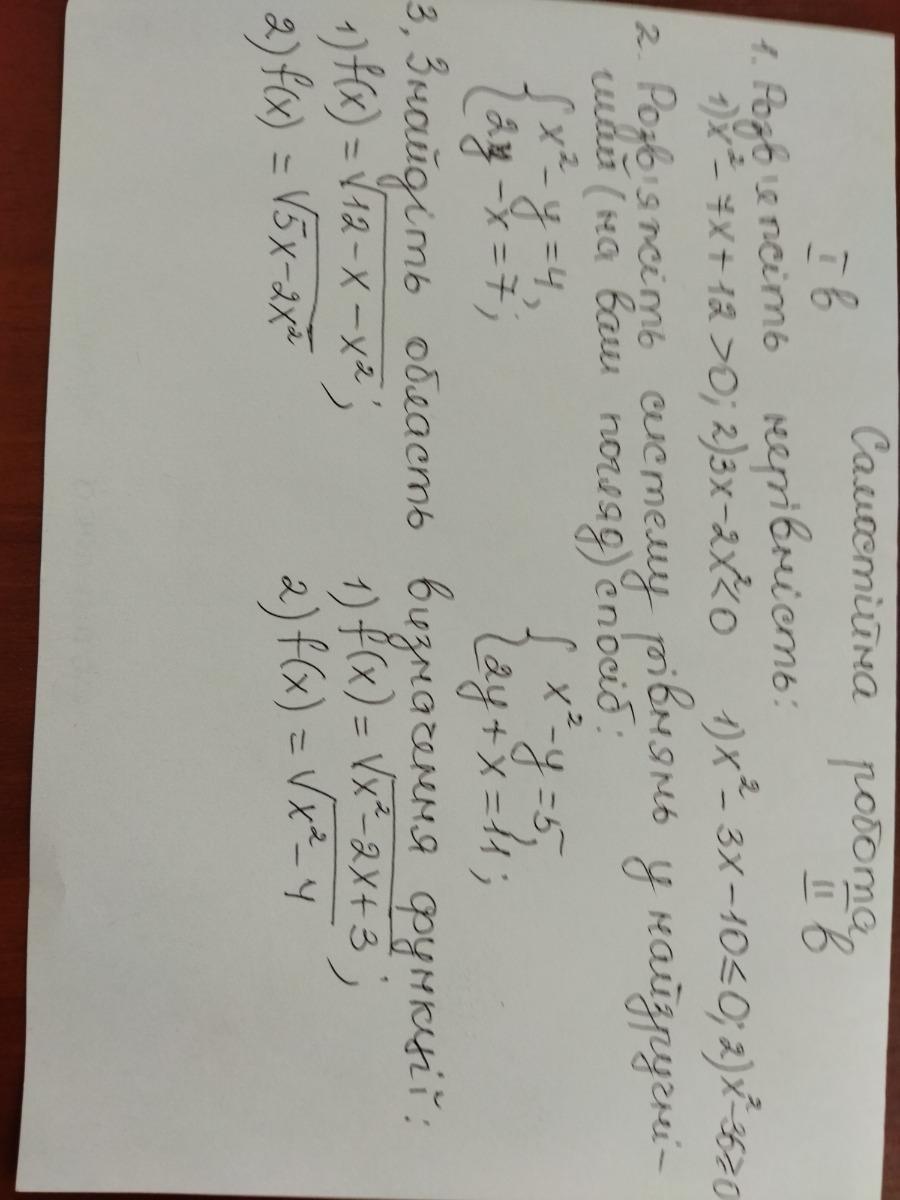 Самостійна робота
І в ІІ в
1. Розв'яжіть нерівність:
1) x² - 7x + 12 > 0; 2) 3x - 2x² < 0 1) x² - 3x - 10 ≤ 0; 2) x² - 36 ≥ 0
2. Розв'яжіть систему рівнянь у найзручні-
ший (на ваш погляд) спосіб:
{ x² - y = 4, { x² - y = 5,
{ 2y - x = 7; { 2y + x = 11;
3. Знайдіть область визначення функції:
1) f(x) = √12 - x - x²; 1) f(x) = √x² - 2x + 3;
2) f(x) = √5x - 2x² 2) f(x) = √x² - 4